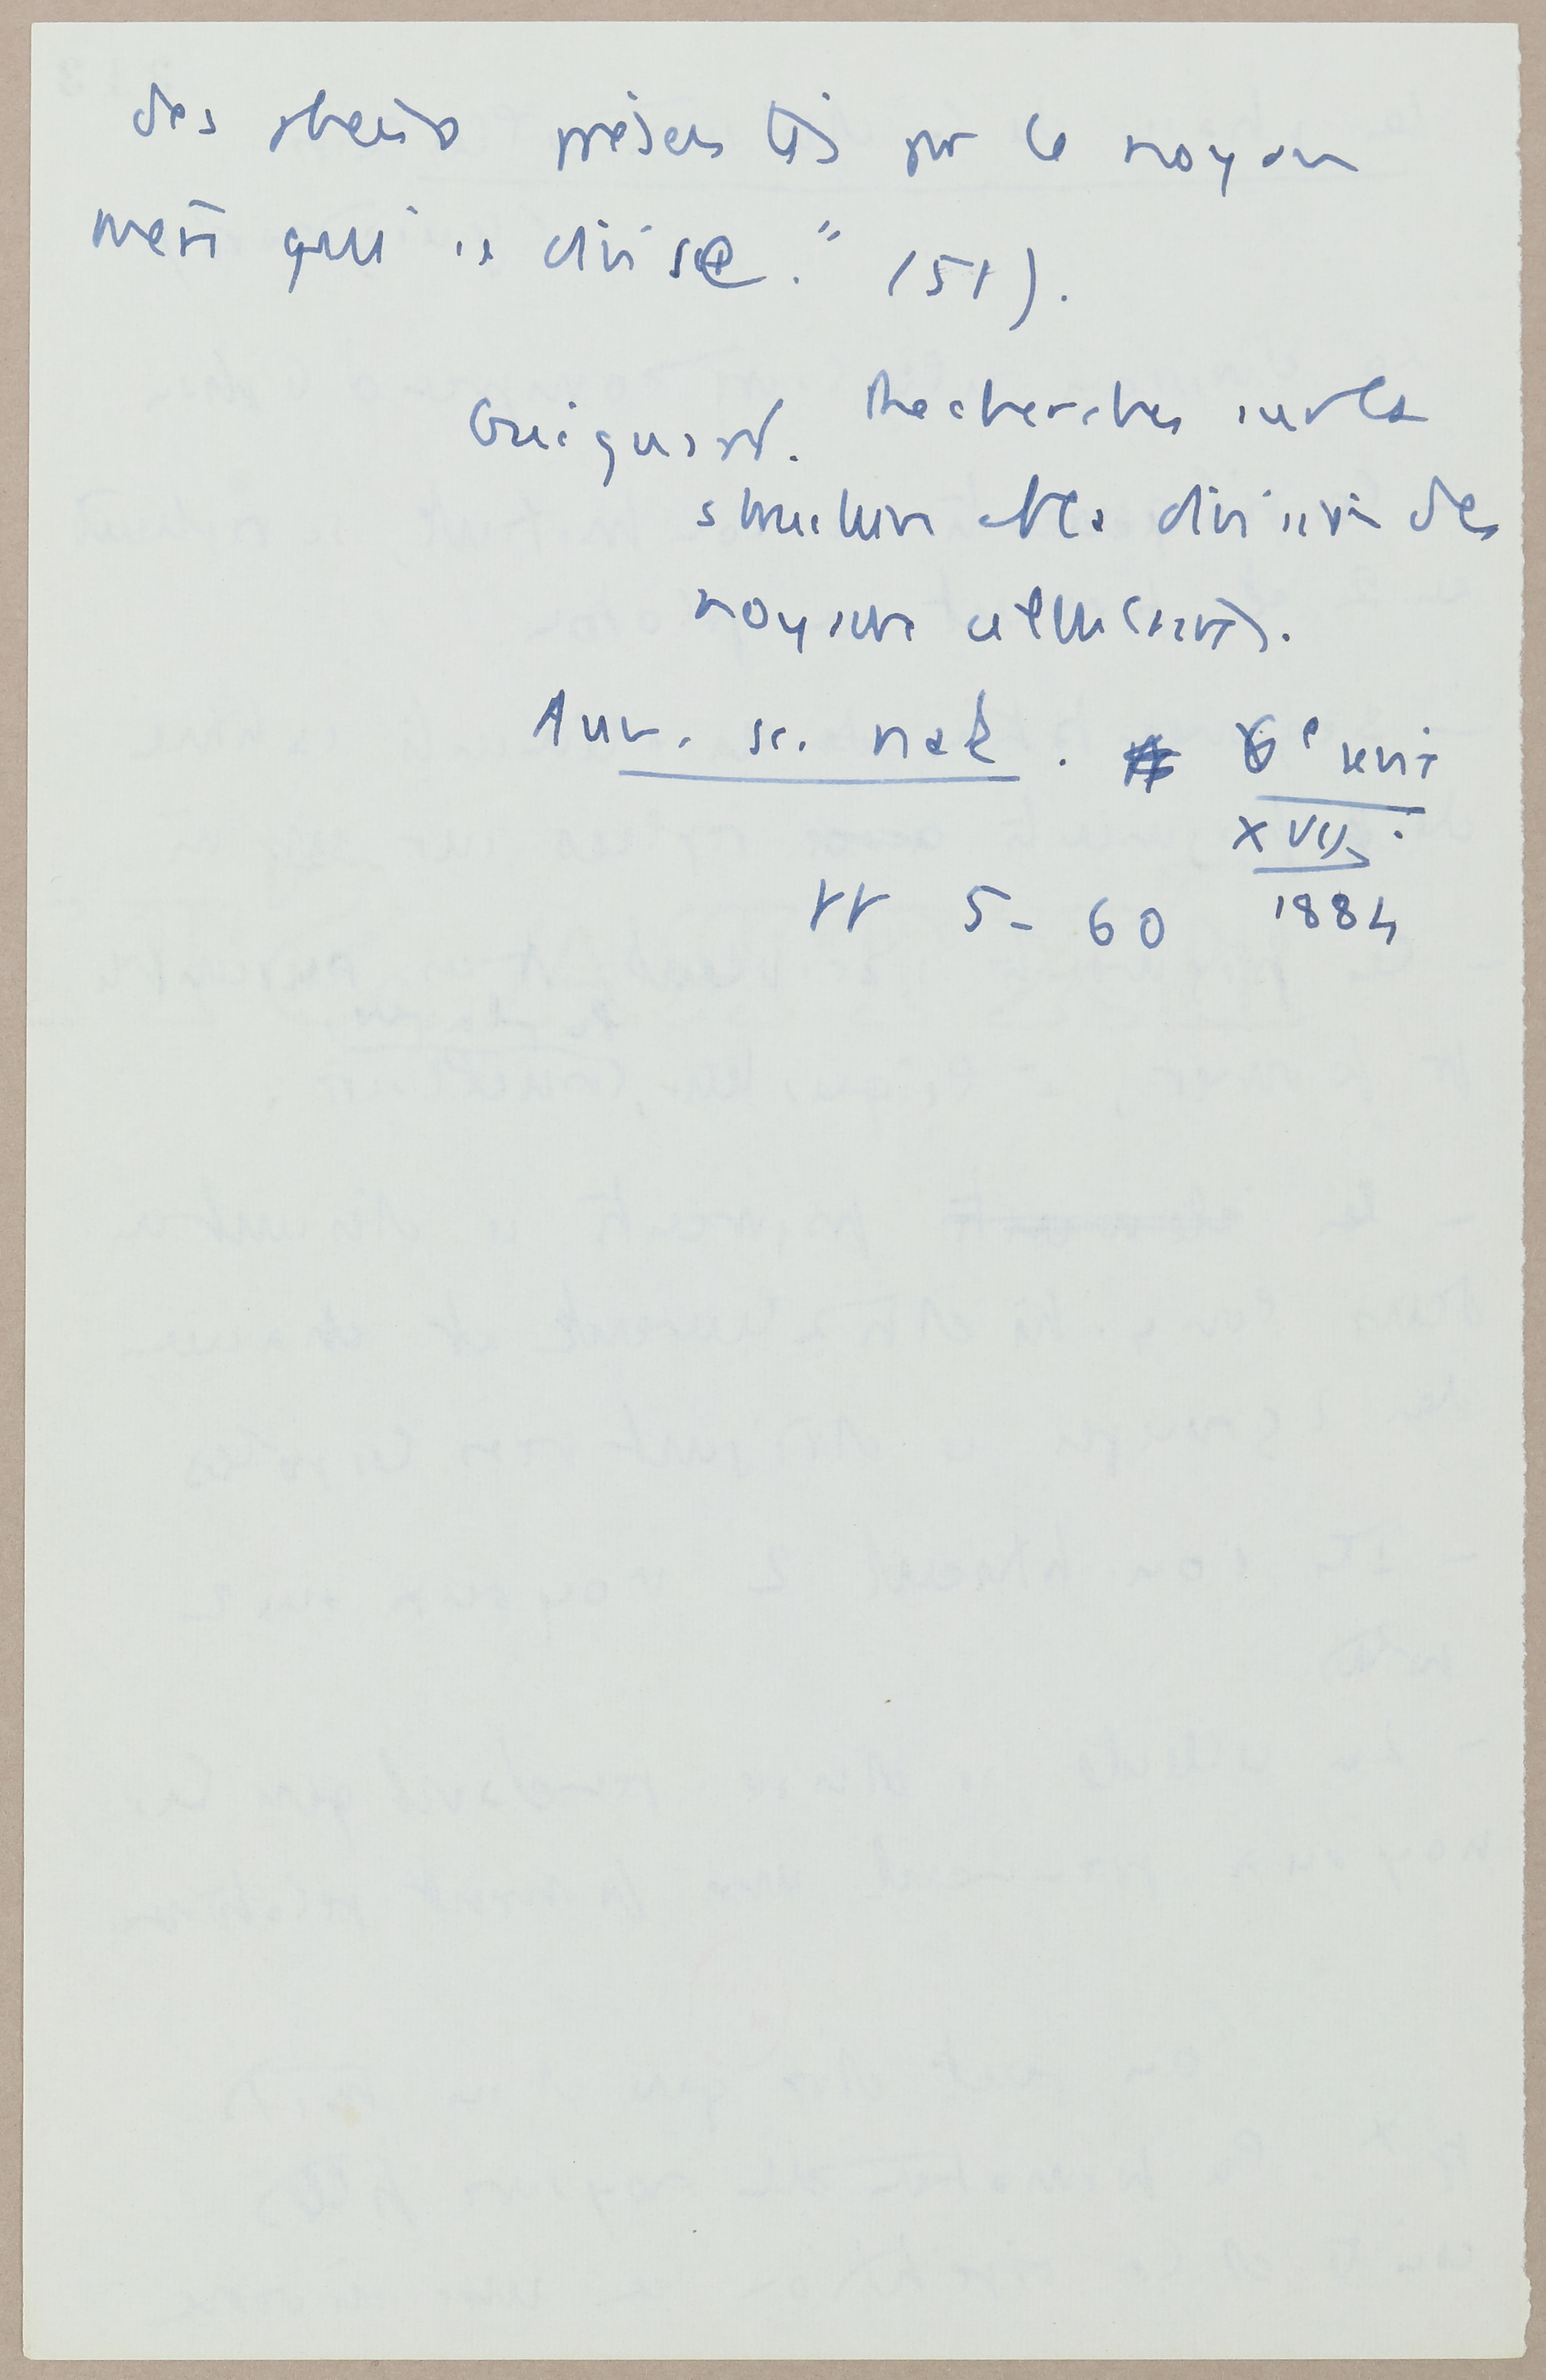 des phases présentées par le noyau
mère qui se divise." (51).
Guignard. Recherches sur la
structure et la division des
noyaux cellulaires.
Ann. sc. nat. 6e série
XVII.
pp 5-60 1884